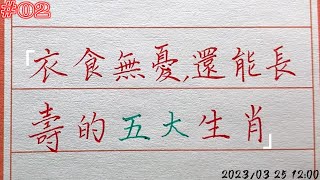 #02
「衣食無憂,還能長
壽的五大生肖」
2023/03 25 12:00